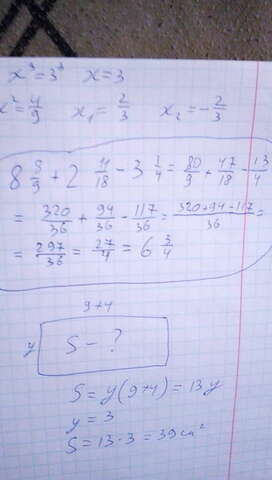 x³=3³ x=3
x²=4/9 x₁=2/3 x₂=-2/3
8 8/9 + 2 11/18 - 3 1/4 = 80/9 + 47/18 - 13/4
= 320/36 + 94/36 - 117/36 = 320+94-117/36 =
= 297/36 = 27/4 = 6 3/4
9+4
y S - ?
S = y(9+4) = 13y
y = 3
S = 13·3 = 39 см²